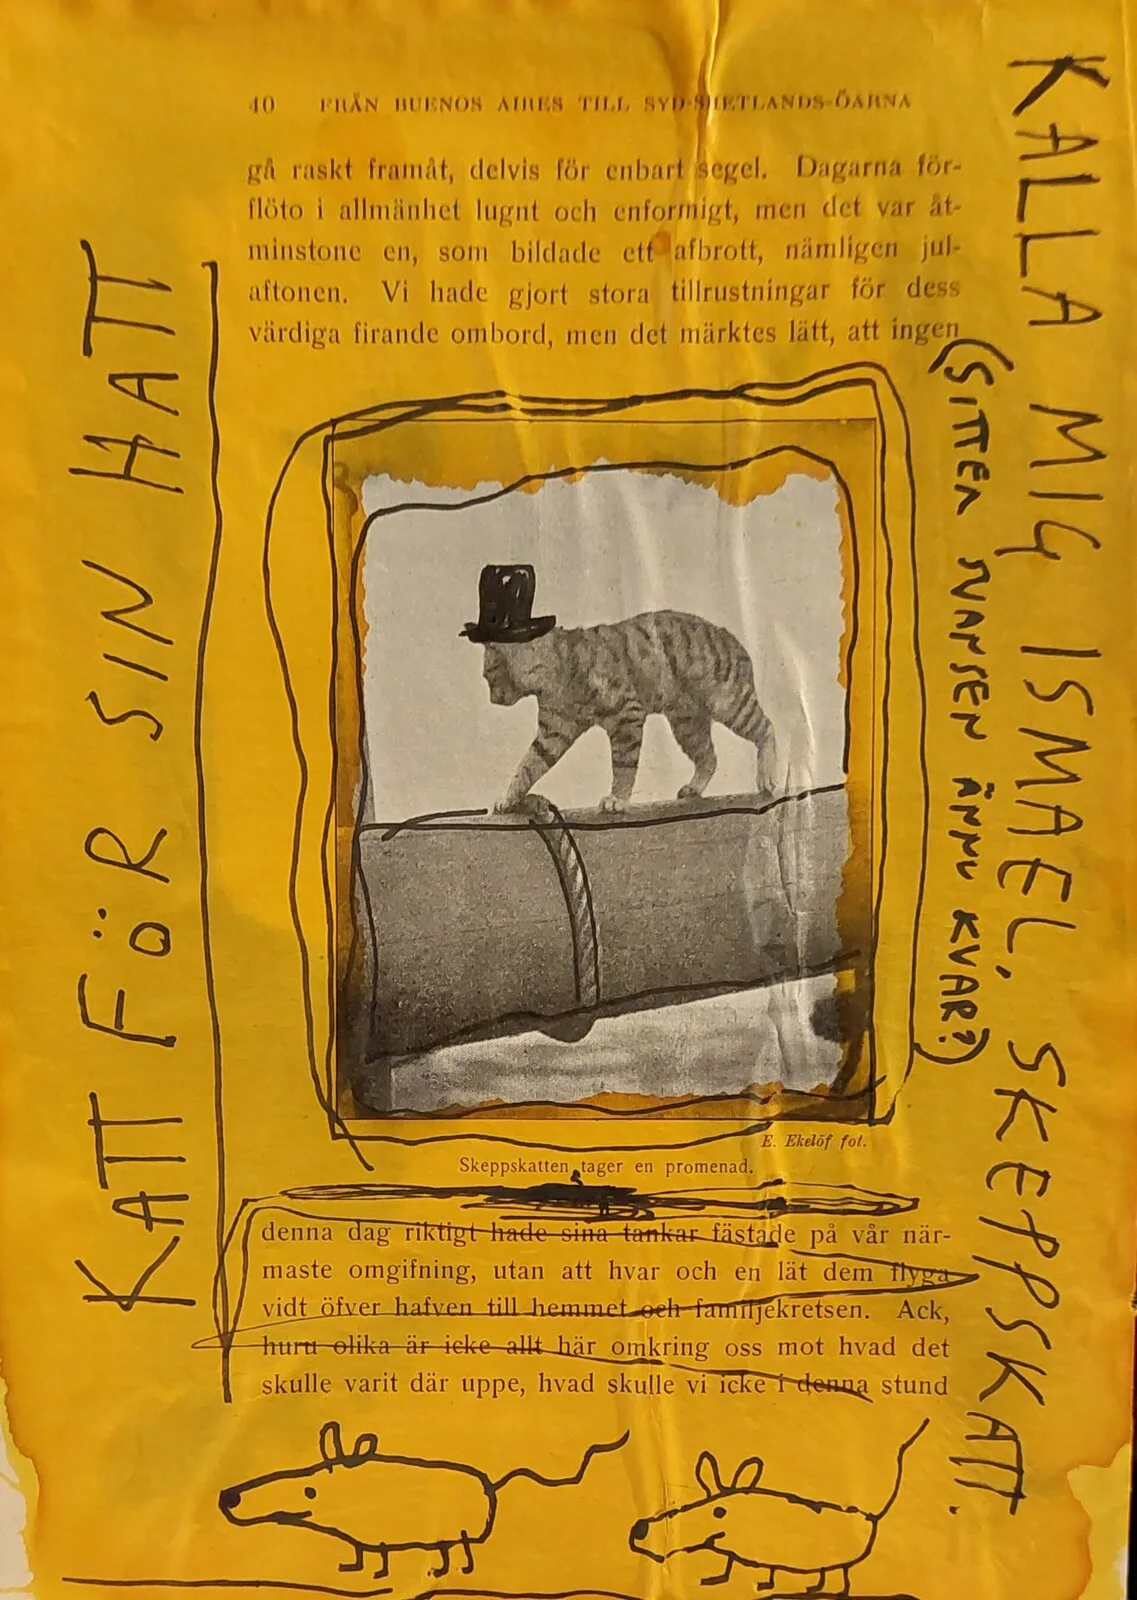 40 FRÅN BUENOS AIRES TILL SYD-SHETLANDS-ÖARNA
gå raskt framåt, delvis för enbart segel. Dagarna för-
flöto i allmänhet lugnt och enformigt, men det var åt-
minstone en, som bildade ett afbrott, nämligen jul-
aftonen. Vi hade gjort stora tillrustningar för dess
värdiga firande ombord, men det märktes lätt, att ingen
E. Ekelöf fot.
Skeppskatten tager en promenad.
denna dag riktigt hade sina tankar fästade på vår när-
maste omgifning, utan att hvar och en lät dem flyga
vidt öfver hafven till hemmet och familjekretsen. Ack,
huru olika är icke allt här omkring oss mot hvad det
skulle varit där uppe, hvad skulle vi icke i denna stund
KATT FÖR SIN HATT
KALLA MIG ISMAEL, SKEPPSKATT.
(SITTER NANSEN ÄNNU KVAR?)